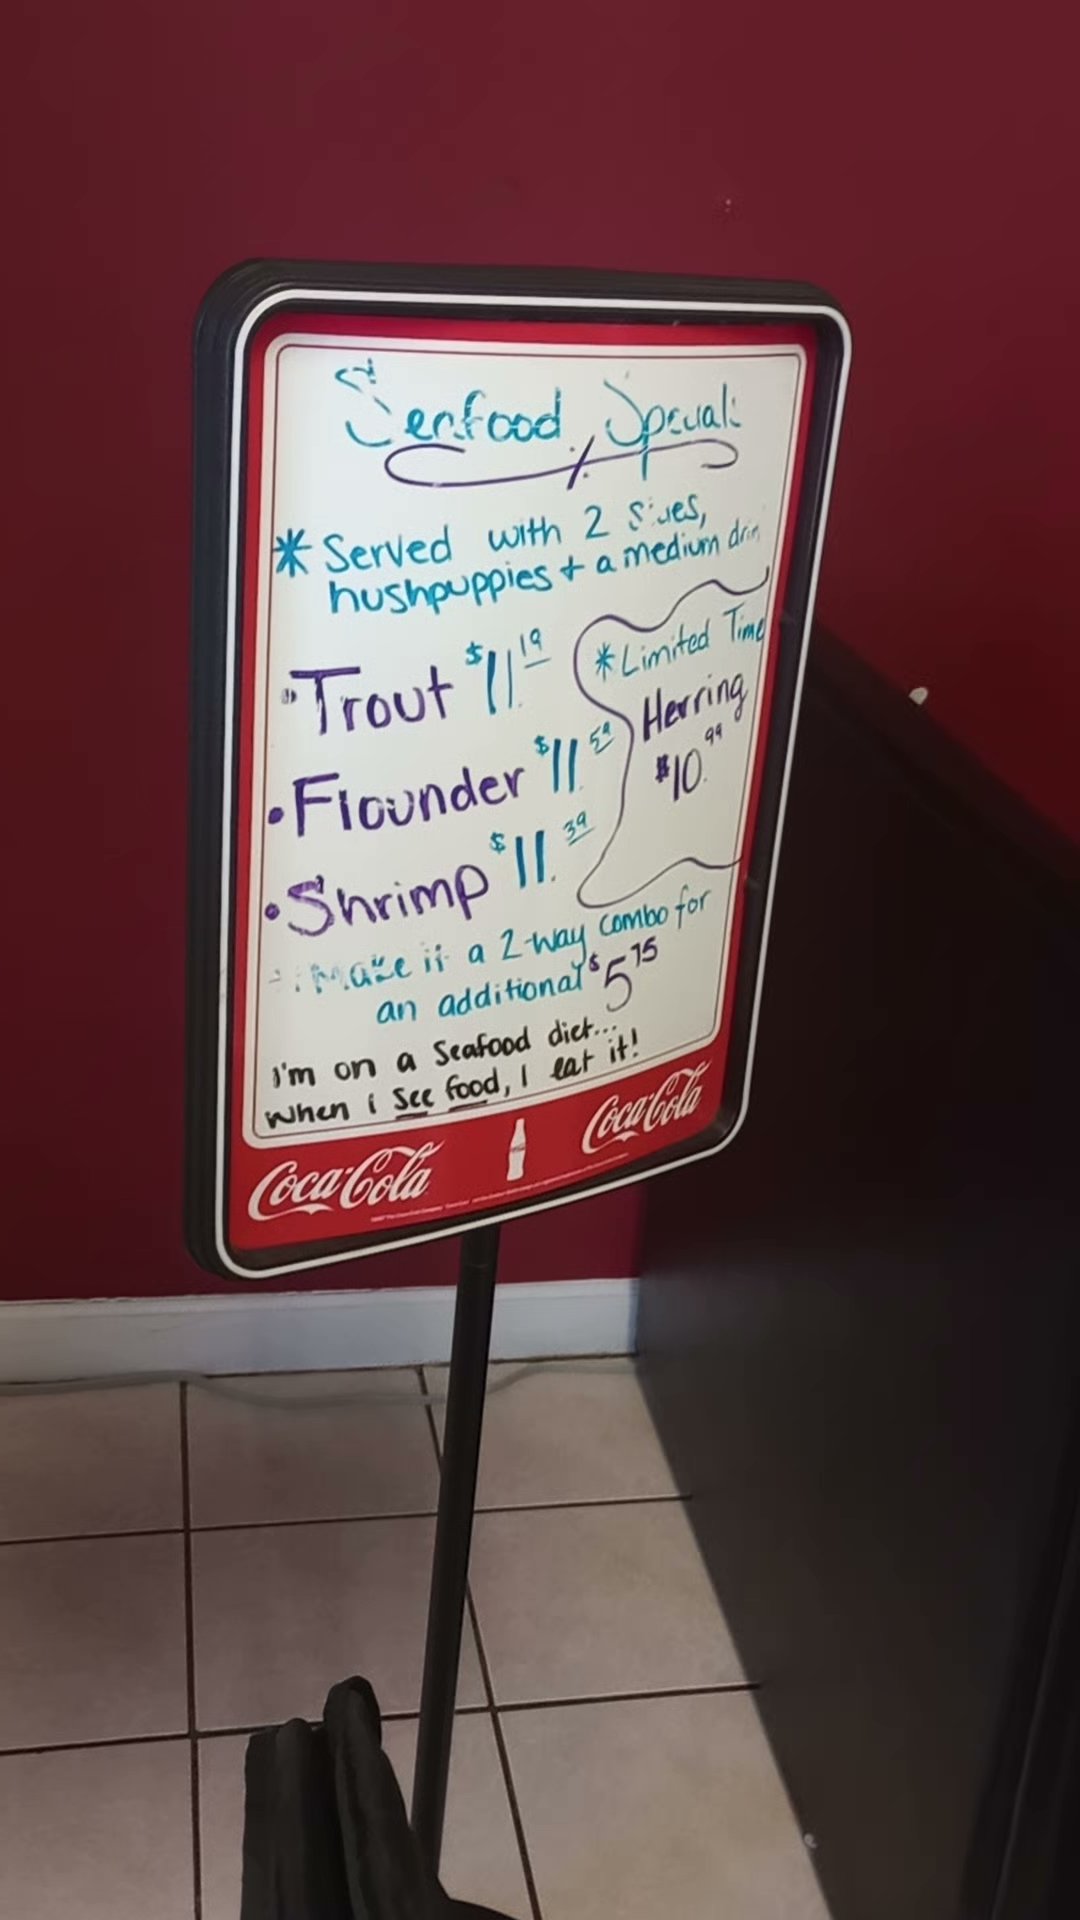 Seafood Specials
* Served with 2 sides,
hushpuppies + a medium drink
• Trout $11.19
• Flounder $11.59
• Shrimp $11.39
* Limited Time
Herring
$10.99
Make it a 2-way combo for
an additional $5.75
I'm on a Seafood diet...
When i See food, I eat it!
Coca-Cola
Coca-Cola